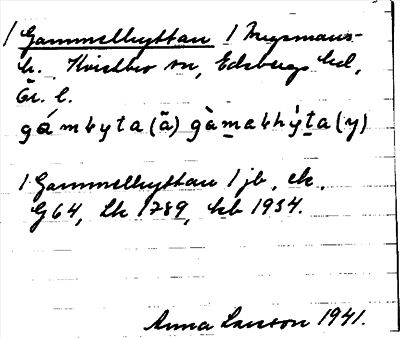 / Gammelhyttan / Bergsmans-
h. Kvistbro sn, Edsbergs hd,
Ör. l.
gámhyta (ã) gàmakhýta (y)
/ Gammelhyttan / jb, ek.
G 64, Lk 1789, hb 1934.
Anna Larsson 1941.